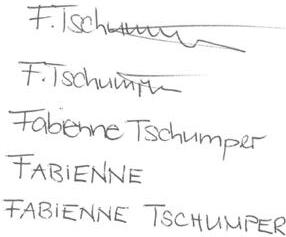 F. Tschumm
F. Tschumpr
Fabienne Tschumper
FABiENNE
FABIENNE TSCHUMPER